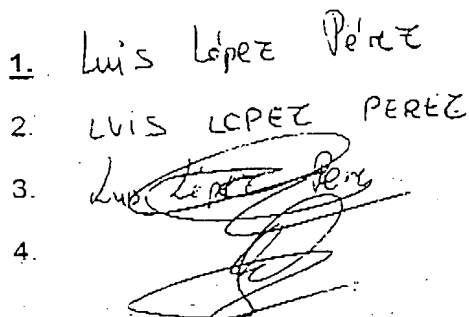 1. Luis López Pérez
2. LUIS LOPEZ PEREZ
3. López
4.